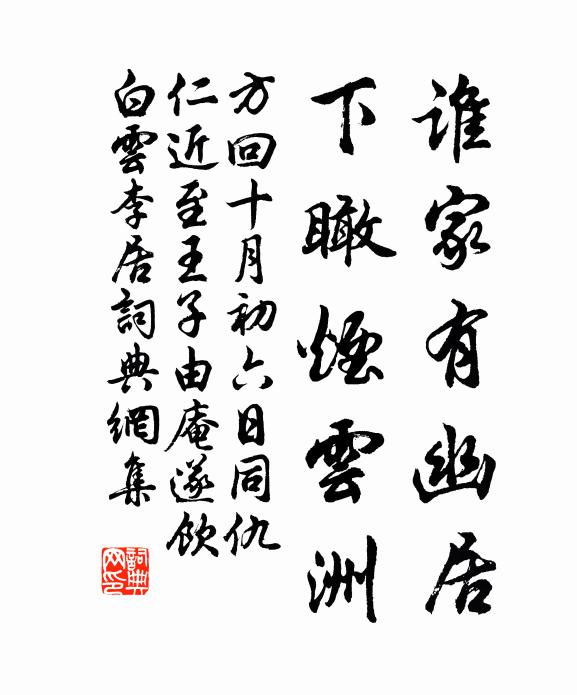 誰家有幽居
下瞰煙雲洲
方回十月初六日同仇
仁近至王子由庵遂飲
白雲李居詞典網集
詞典
网印